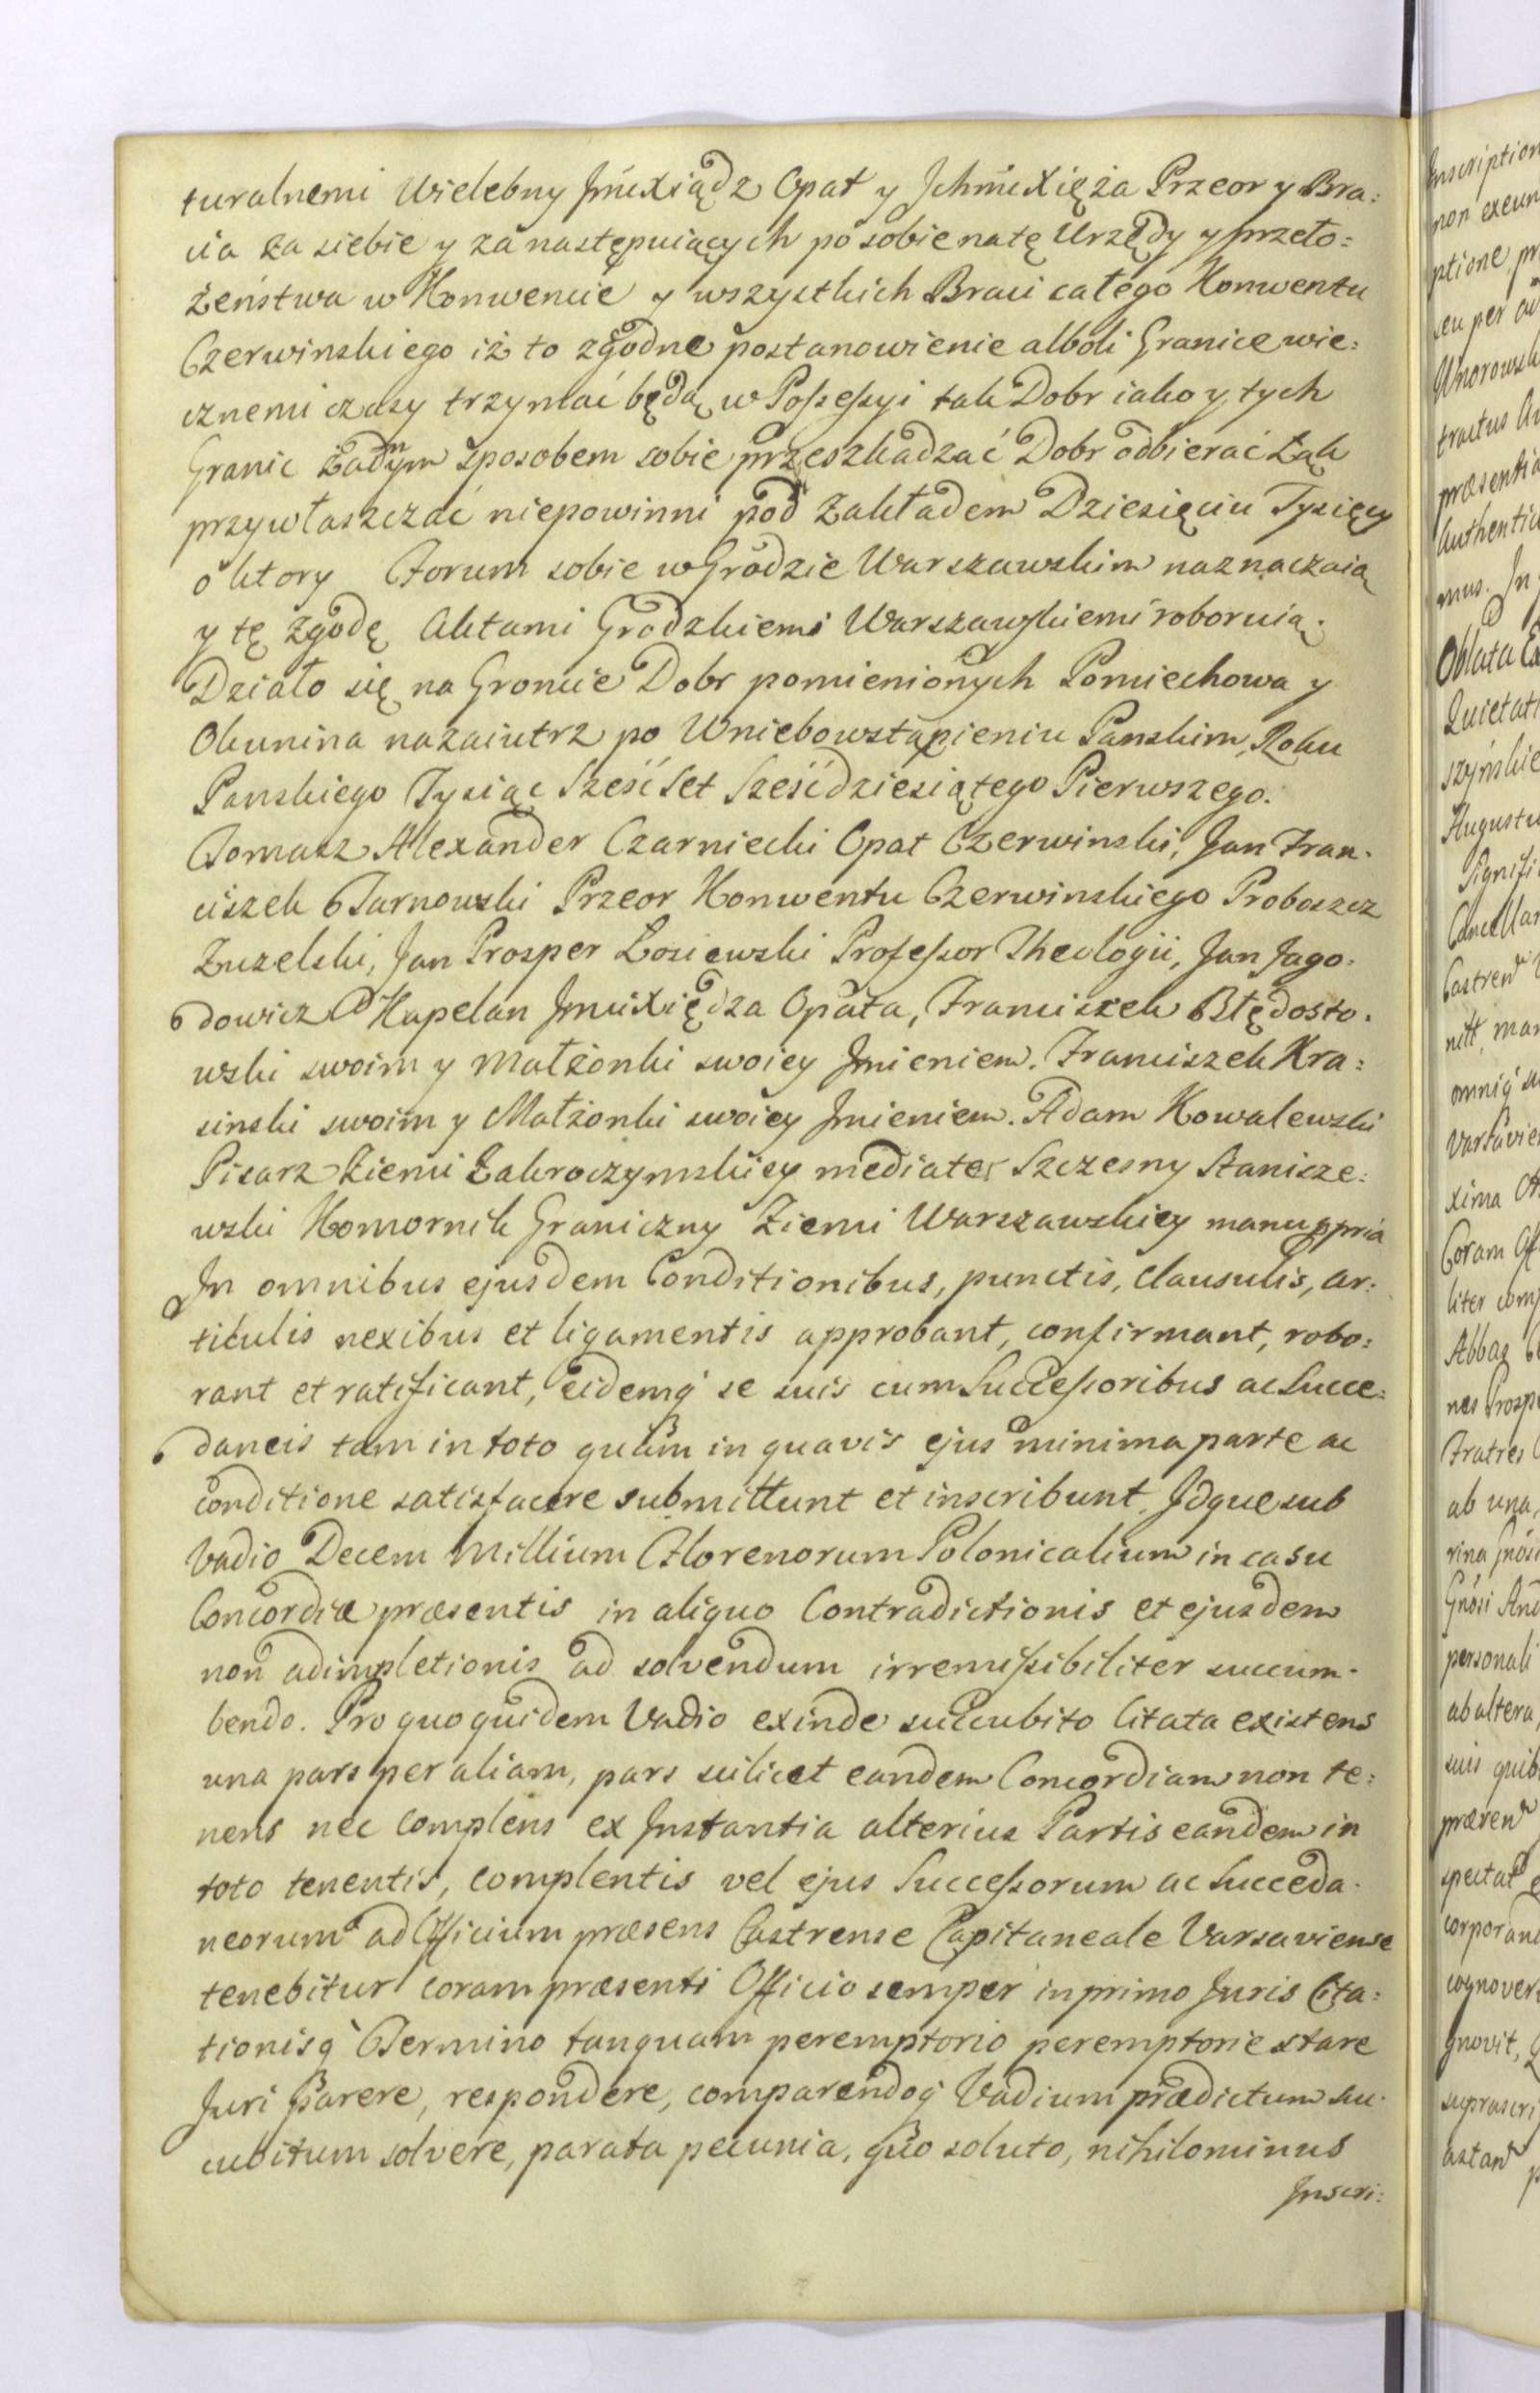 turalnemi Wielebny Jmćxiądz Opat y Ichmćxięża Przeor y Bra:
cia za siebie y za następuiących po sobie na tę Urzędy y przeło:
żeństwa w Konwencie y wszystkich Braci całego Konwentu
Czerwinskiego iż to zgodne postanowienie alboli Granice wie:
cznemi czasy trzymać będą w Possessyi tak Dobr iako y tych
Granic żadnym sposobem sobie przeszkadzać Dobr odbierać Łąk
przywłaszczać niepowinni pod Zakładem Dziesięciu Tysięcy
o ktory Forum sobie w Grodzie Warszawskim naznaczaią
y tę zgodę Aktami Grodzkiemi Warszawskiemi roboruią.
Działo się na Groncie Dobr pomienionych Pomiechowa y
Okunina nazaiutrz po Wniebowstąpieniu Panskim, Roku
Panskiego Tysiąc Sześć Set Sześćdziesiątego Pierwszego.
Tomasz Alexander Czarniecki Opat Czerwinski, Jan Fran:
ciszek Tarnowski Przeor Konwentu Czerwinskiego Proboszcz
Zuzelski, Jan Prosper Łosiewski Professor Theologii, Jan Jago:
dowicz Kapelan Jmćixiędza Opata, Franciszek Błędosto:
wski swoim y Małżonki swoiey Jmieniem. Franciszek Kra:
sinski swoim y Małżonki swoiey Jmieniem. Adam Kowalewski
Pisarz Ziemi Zakroczymskiey mediator Szczesny Stanisze:
wski Komornik Graniczny Ziemi Warszawskiey manu ppria
In omnibus ejusdem Conditionibus, punctis, Clausulis, ar:
ticulis nexibus et ligamentis approbant, confirmant, robo:
rant et ratificant, eidemq́ se suis cum Successoribus ac Succe:
daneis tam in toto quàm in quavis ejus minima parte ac
conditione satisfacere submittunt et inscribunt. Idque sub
Vadio Decem Millium Florenorum Polonicalium in casu
Concordiæ præsentis in aliquo Contradictionis et ejusdem
non adimpletionis ad solvendum irremissibiliter succum:
bendo. Pro quo quidem Vadio exinde succubito Citata existens
una pars per aliam, pars scilicet eandem Concordiam non te:
nens nec complens ex Instantia alterius Partis eandem in
toto tenentis, complentis vel ejus Successorum ac Succeda:
neorum ad Officium præsens Castrense Capitaneale Varsaviense
tenebitur coram præsenti Officio semper in primo Juris Cita:
tionisq́ Termino tanquam peremptorio peremptorie stare
Juri Parere, respondere, comparendoq́ Vadium prædictum suc:
cubitum solvere, parata pecunia, quo soluto, nihilominus
Inscri:
non
mus. In
Oblata
Coram
Abbas
Fratres
ab una,
personali
ab altera,
gnovit,